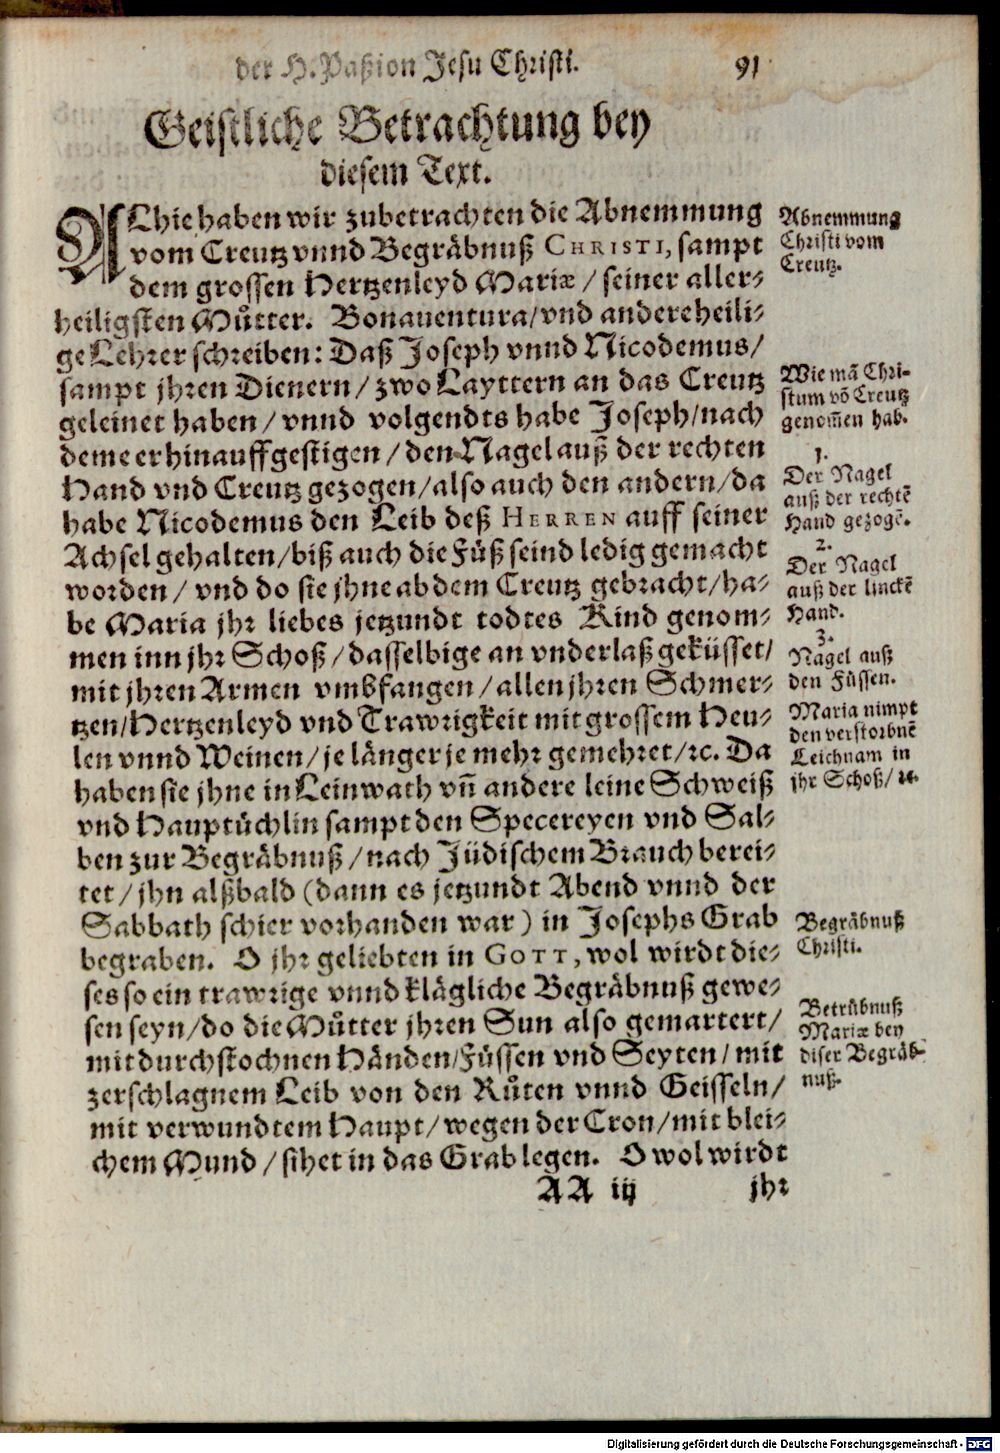 der H. Paßion Jesu Christi. 91
Geistliche Betrachtung bey
diesem Text.
ALhie haben wir zubetrachten die Abnemmung
vom Creutz vnnd Begräbnuß CHRISTI, sampt
dem grossen Hertzenleyd Mariæ / seiner aller-
heiligsten Můtter. Bonauentura/vnd andere heili-
ge Lehrer schreiben: Daß Joseph vnnd Nicodemus/
sampt jhren Dienern / zwo Layttern an das Creutz
geleinet haben / vnnd volgendts habe Joseph/nach
deme er hinauff gestigen / den Nagel auß der rechten
Hand vnd Creutz gezogen/also auch den andern/da
habe Nicodemus den Leib deß HERREN auff seiner
Achsel gehalten/biß auch die Füß seind ledig gemacht
worden / vnd do sie jhne ab dem Creutz gebracht/ha-
be Maria jhr liebes jetzundt todtes Kind genom-
men inn jhr Schoß / dasselbige an vnderlaß geküsset/
mit jhren Armen vmbfangen / allen jhren Schmer-
tzen/Hertzenleyd vnd Trawrigkeit mit grossem Heu-
len vnnd Weinen/je länger je mehr gemehret/ꝛc. Da
haben sie jhne in Leinwath vñ andere leine Schweiß
vnd Hauptüchlin sampt den Specereyen vnd Sal-
ben zur Begräbnuß / nach Jüdischem Brauch berei-
tet / jhn alßbald (dann es jetzundt Abend vnnd der
Sabbath schier vorhanden war) in Josephs Grab
begraben. O jhr geliebten in GOTT, wol wirdt die-
ses so ein trawrige vnnd klägliche Begräbnuß gewe-
sen seyn/do die Můtter jhren Sun also gemartert/
mit durchstochnen Händen/Füssen vnd Seyten/ mit
zerschlagnem Leib von den Růten vnnd Geisseln/
mit verwundtem Haupt/ wegen der Cron/mit blei-
chem Mund / sihet in das Grab legen. O wol wirdt
AA iij jhr
Abnemmung
Christi vom
Creutz.
Wie mã Chri-
stum võ Creutz
genom̃en hab.
1.
Der Nagel
auß der rechtẽ
Hand gezogẽ.
2.
Der Nagel
auß der linckẽ
Hand.
3.
Nägel auß
den Füssen.
Maria nimpt
den verstorbnẽ
Leichnam in
jhr Schoß/ ꝛc.
Begräbnuß
Christi.
Betrübnuß
Mariæ bey
diser Begräb-
nuß.
Digitalisierung gefördert durch die Deutsche Forschungsgemeinschaft - DFG